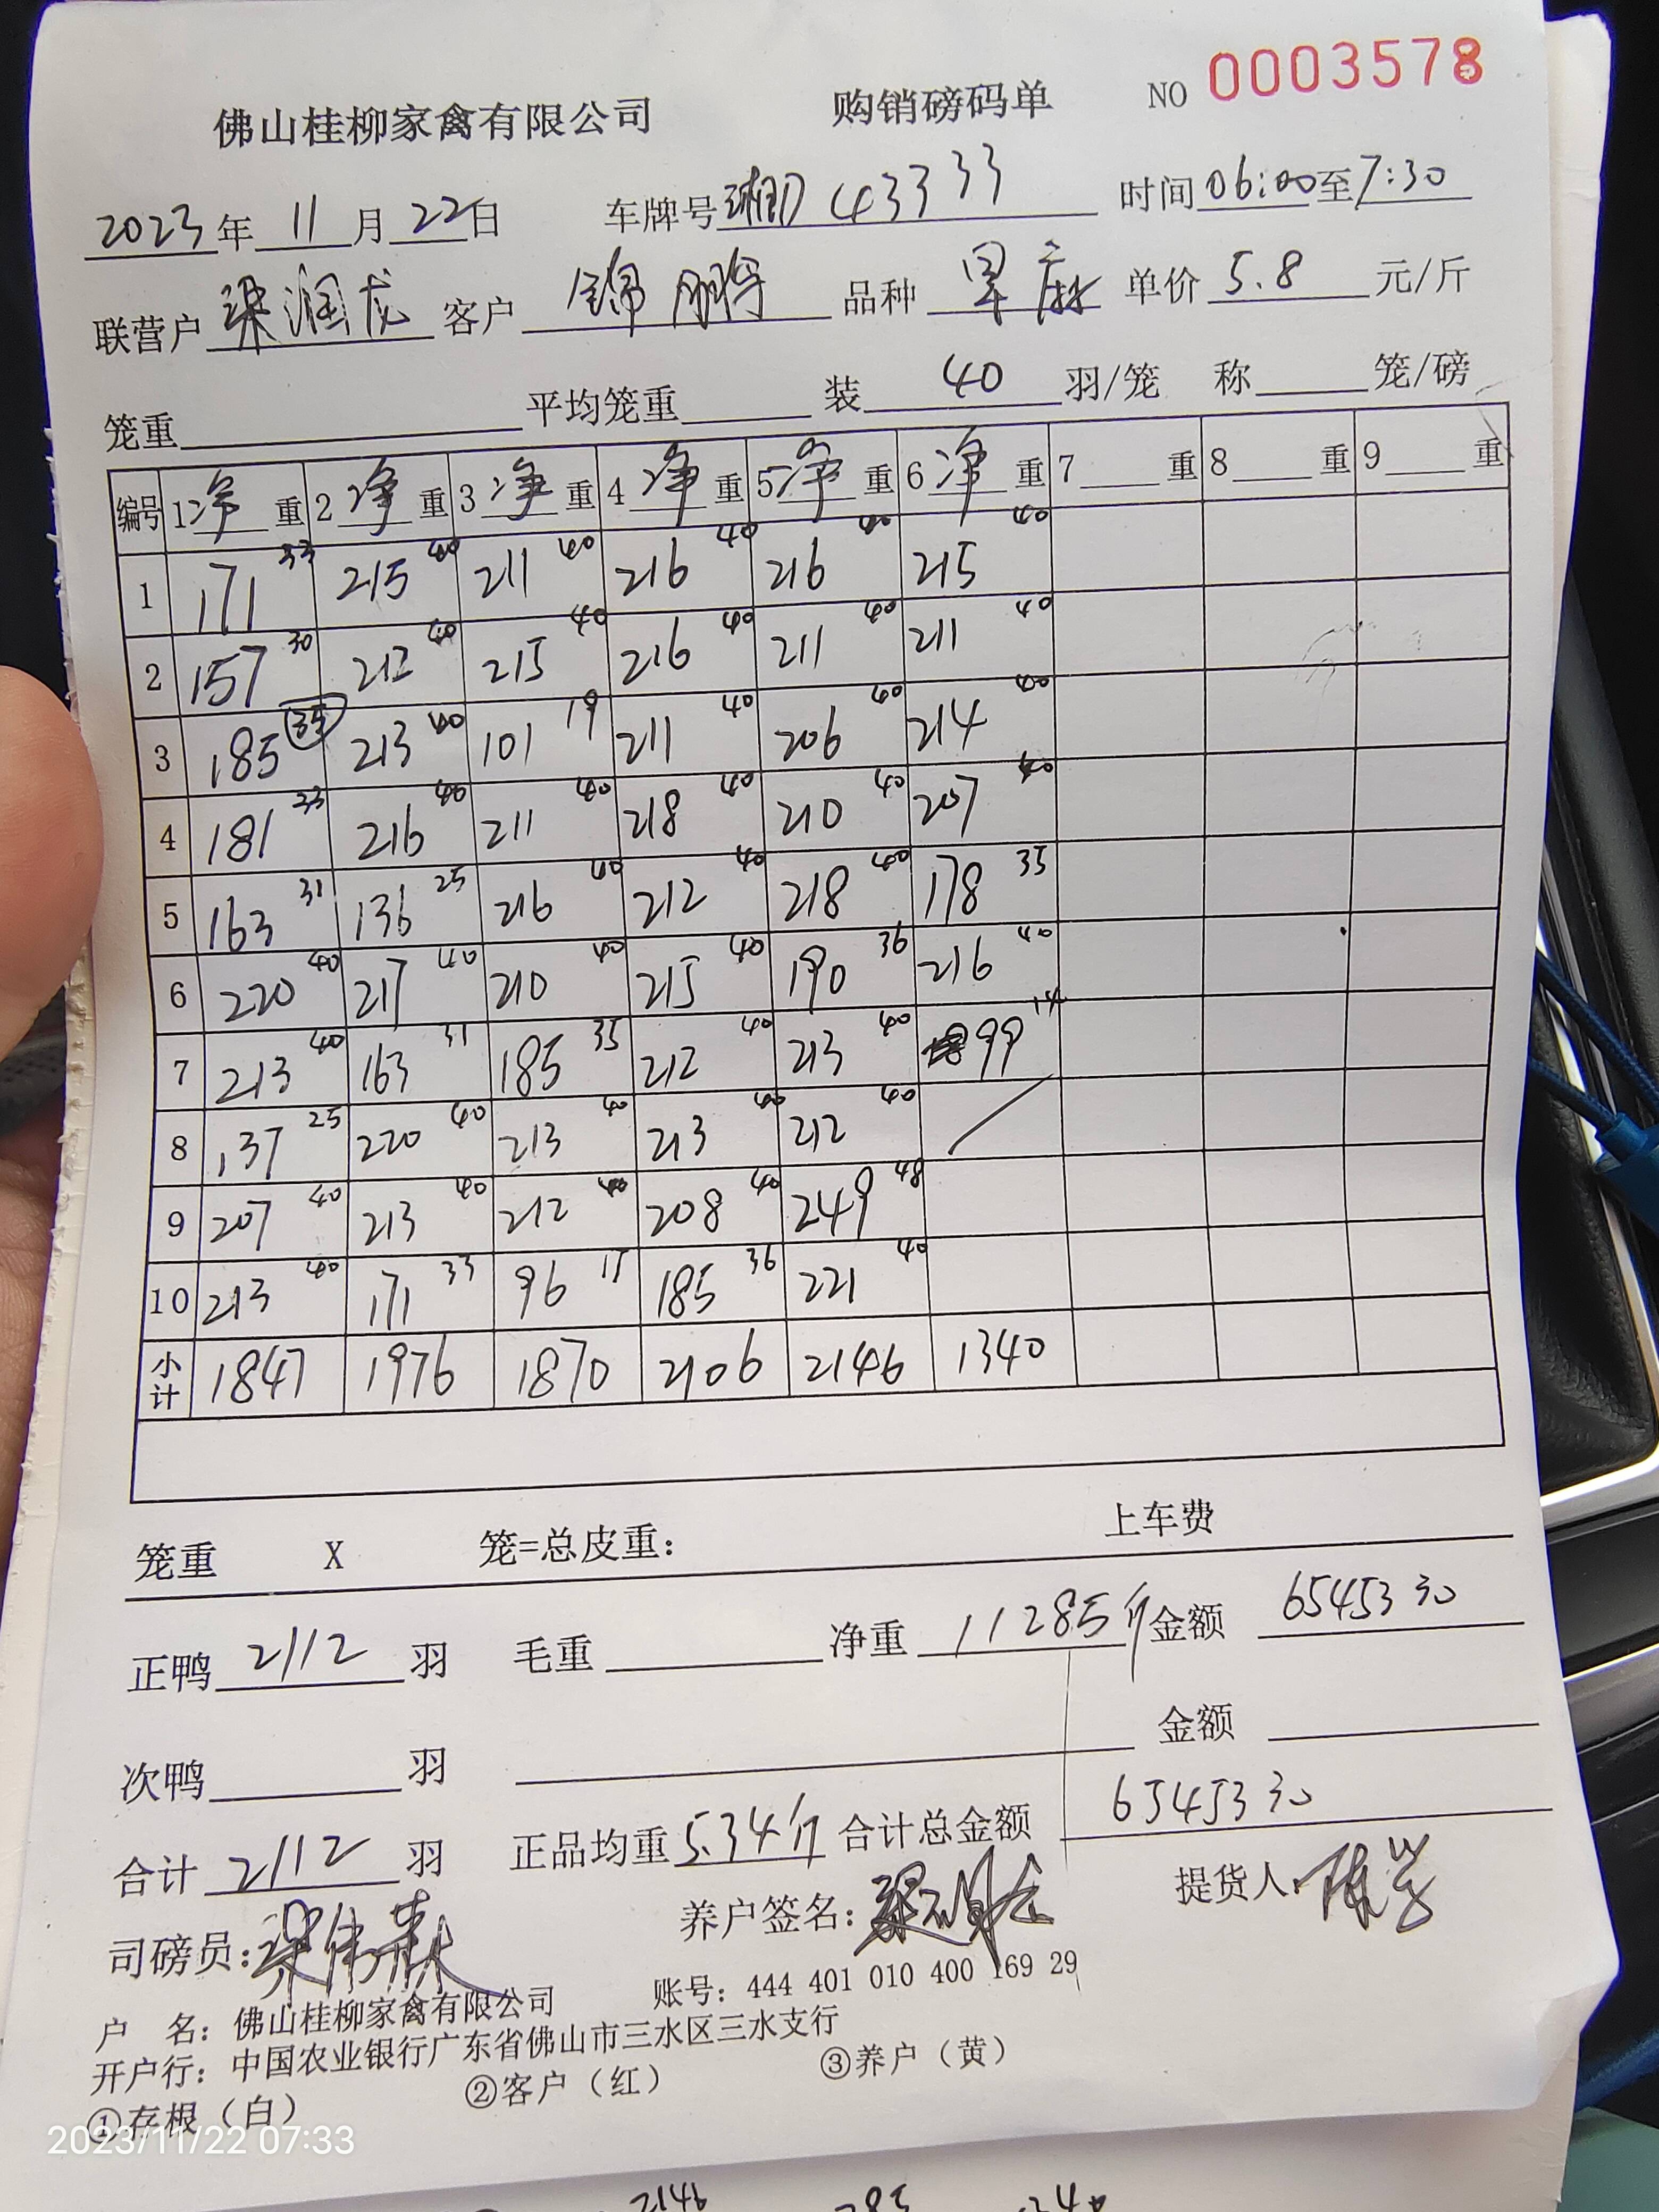 佛山桂柳家禽有限公司 购销磅码单 NO 0003578
2023年 11 月 22日 车牌号 湘D 43333 时间 06:00 至 7:30
联营户 梁润龙 客户 锦鹏 品种 单价 5.8 元/斤
笼重 平均笼重 装 40 羽/笼 称 笼/磅
编号 1 净 重 2 净 重 3 净 重 4 净 重 5 净 重 6 净 重 7 重 8 重 9 重
1 171 33 215 40 211 40 216 40 216 40 215 40
2 157 30 212 40 215 40 216 40 211 40 211 40
3 185 35 213 40 101 19 211 40 206 40 214 40
4 181 33 216 40 211 40 218 40 210 40 207 40
5 163 31 136 25 216 40 212 40 218 40 178 35
6 220 40 217 40 210 40 215 40 190 36 216 40
7 213 40 163 31 185 35 212 40 213 40 99 14
8 137 25 220 40 213 40 213 40 212 40
9 207 40 213 40 212 40 208 40 249 48
10 213 40 171 33 96 15 185 36 221 40
小计 1847 1976 1870 2106 2146 1340
笼重 X 笼=总皮重： 上车费
正鸭 2112 羽 毛重 净重 11285斤 金额 65453 30
次鸭 羽 金额
合计 2112 羽 正品均重 5.34斤 合计总金额 65453 30
司磅员： 养户签名： 提货人：
户 名：佛山桂柳家禽有限公司 账号：444 401 010 400 169 29
开户行：中国农业银行广东省佛山市三水区三水支行
①存根（白） ②客户（红） ③养户（黄）
2023/11/22 07:33
2146